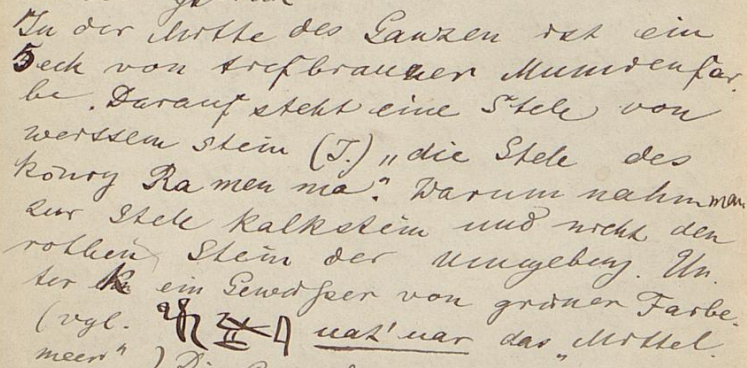 In der Mitte des Ganzen ist ein
5eck von tiefbrauner Mumienfar
be. Darauf steht eine Stele von
weissem Stein (T.) „die Stele des
König Ra men ma". Warum nahm man
zur Stele Kalkstein und nicht den
rothen Stein der Umgebung. Un
ter ein Gewässer von grüner Farbe.
(vgl. uat' uar das „Mittel
meer" )